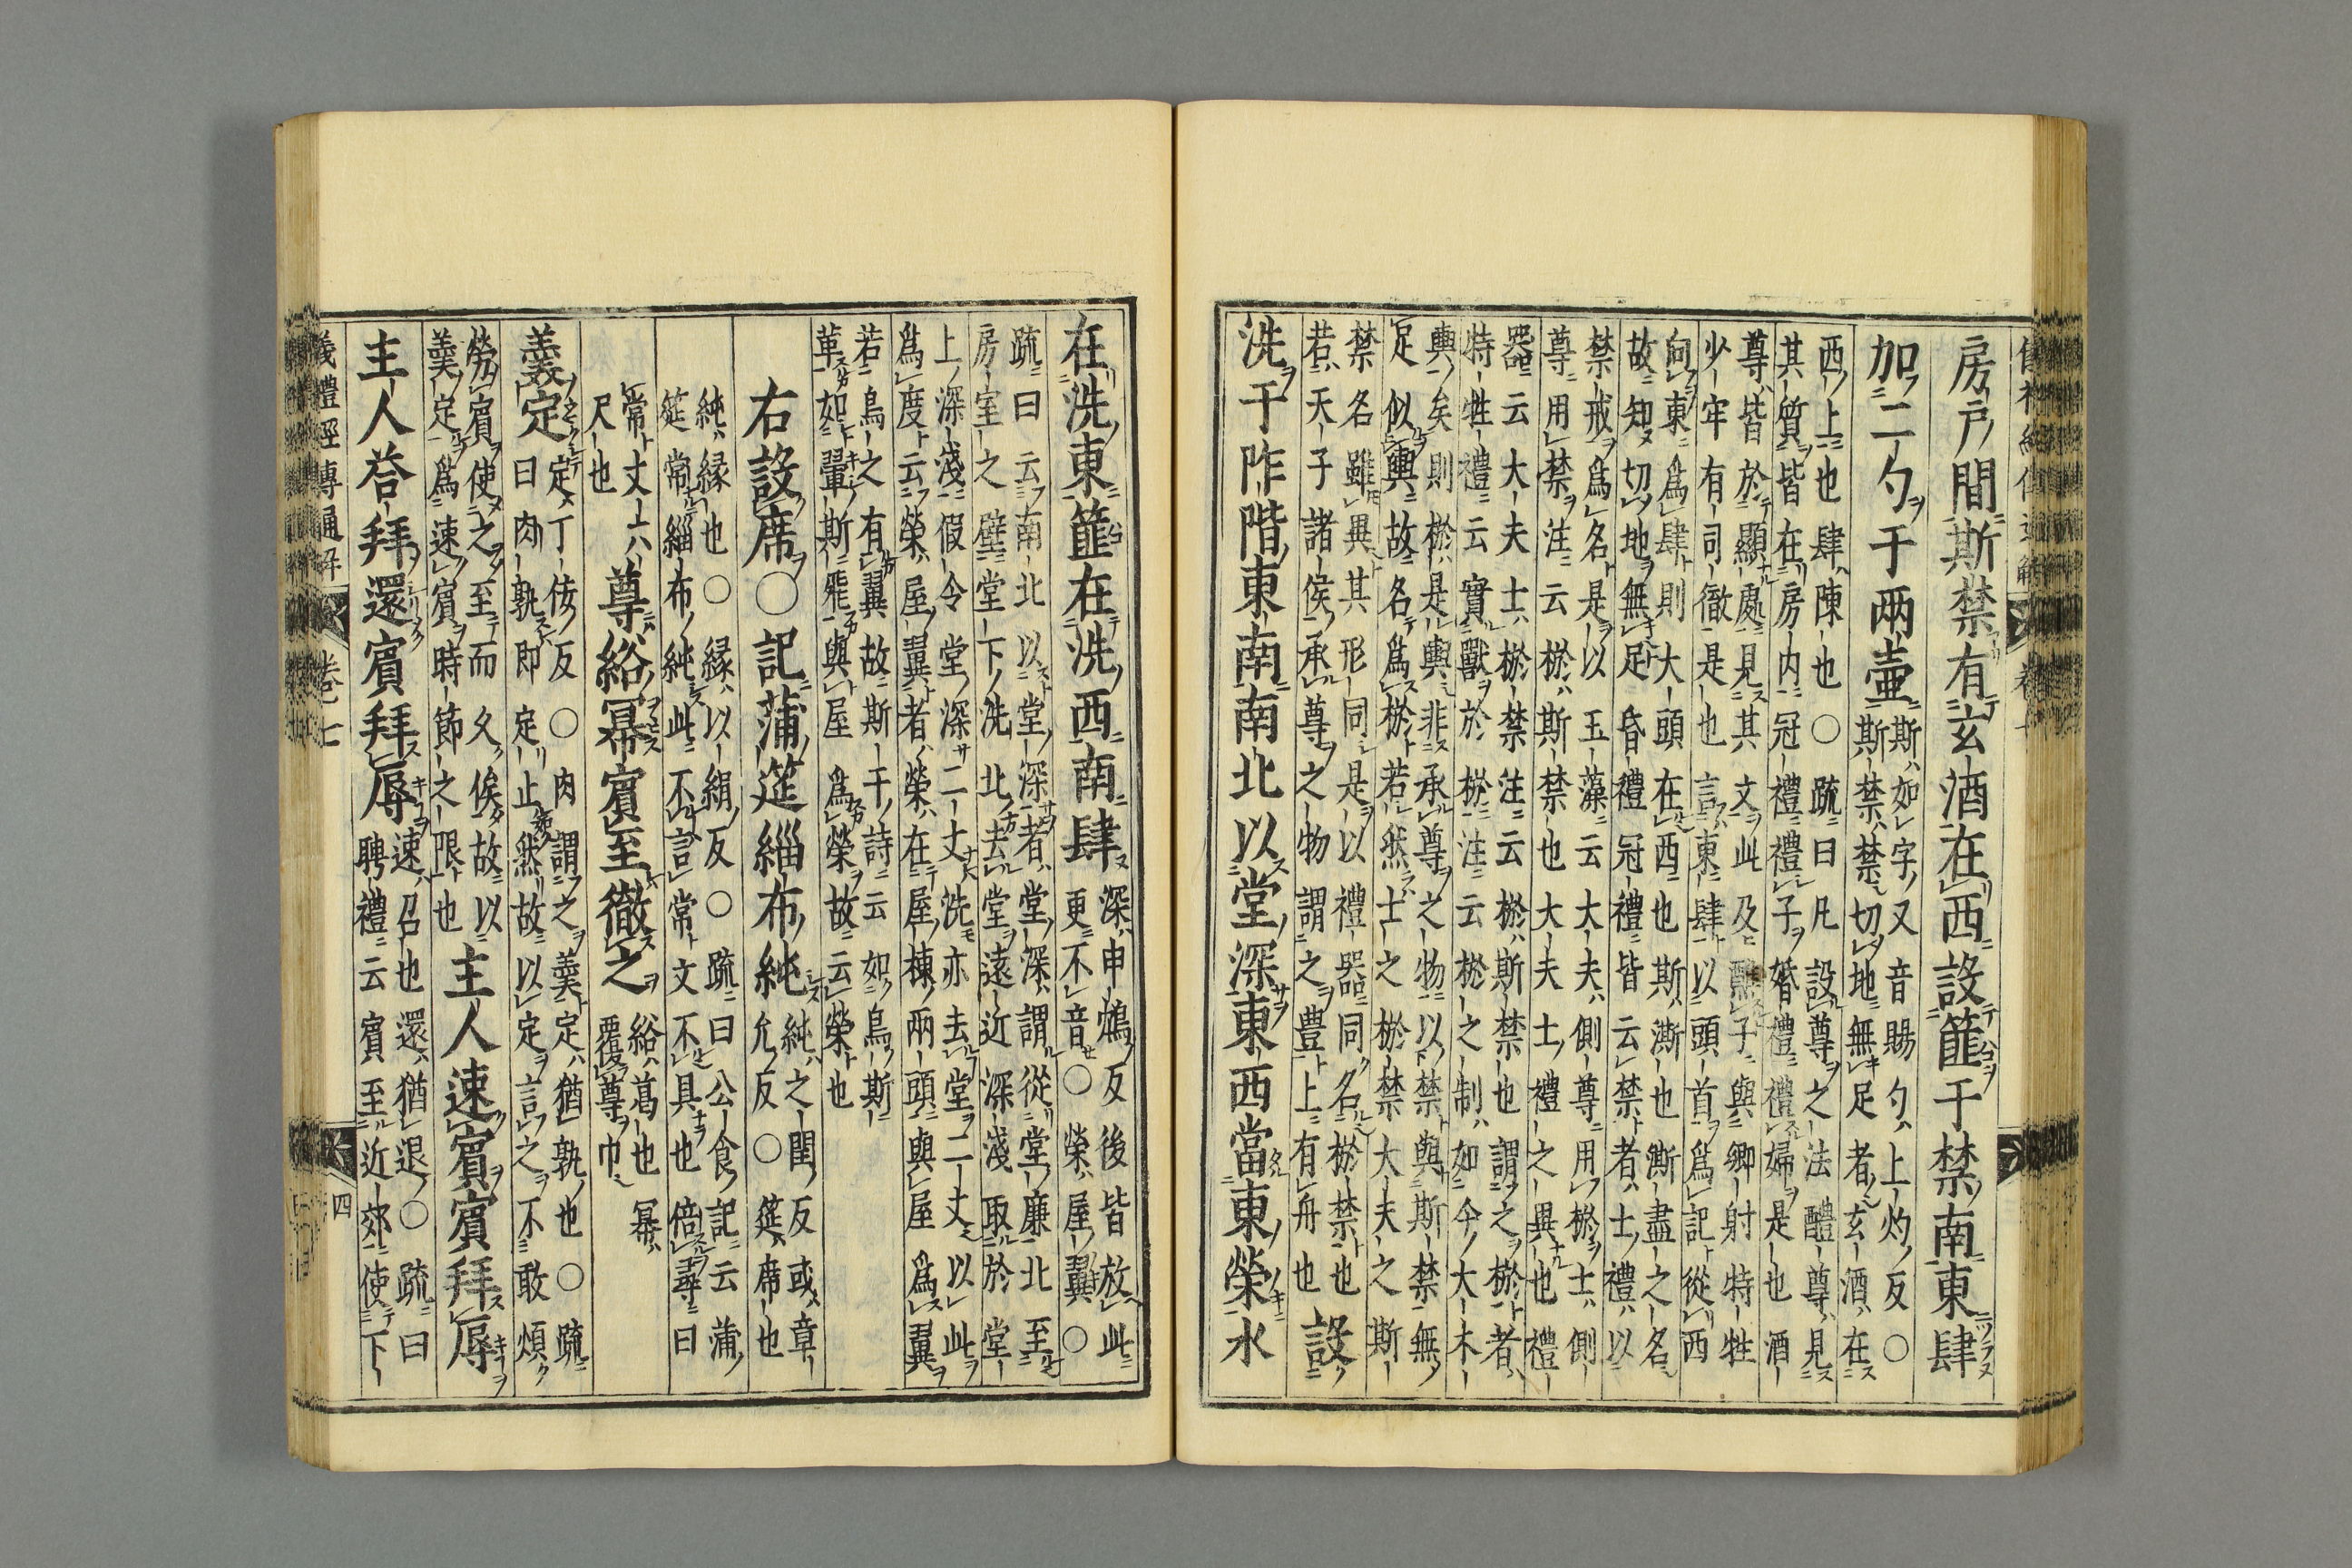 房戶間斯禁有玄酒在西設篚于禁南東肆
加二勺于兩壺
斯如字又音賜勺上灼反○
斯禁禁切地無足者玄酒在
西上也肆陳也○疏曰凡設尊之法醴尊見
其質皆在房内冠禮禮子婚禮禮婦是也酒
尊皆於顯處見其文此及醮子與卿射特牲
少牢有司徹是也言東肆以頭首爲記從西
向東爲肆則大頭在西也斯澌也澌盡之名
故知切地無足昏禮冠禮皆云禁者士禮以
禁戒爲名是以玉藻云大夫側尊用棜士側
尊用禁注云棜斯禁也大夫士禮之異也禮
器云大夫士棜禁注云棜斯禁也謂之棜者
特牲禮云實獸於棜注云棜之制如今大木
輿矣則棜是輿非承尊之物以禁與斯禁無
足似輿故名爲棜若然士之棜禁大夫之斯
禁名雖異其形同是以禮器同名棜禁也
若天子諸侯承尊之物謂之豊上有舟也
設
洗于阼階東南南北以堂深東西當東榮水
在洗東篚在洗西南肆
深申鴆反後皆放此
更不音○榮屋翼○
疏曰云南北以堂深者堂深謂從堂廉北至
房室之壁堂下洗北去堂遠近深淺取於堂
上深淺假令堂深二丈洗亦去堂二丈以此
爲度云榮屋翼者榮在屋棟兩頭與屋爲翼
若鳥之有翼故斯干詩云如鳥斯
革如翬斯飛與屋爲榮故云榮也
右設席○記蒲筵緇布純
純之閏反或章
允反○筵席也
純縁也○縁以絹反○疏曰公食記云蒲
筵常緇布純此不言常文不具也倍尋曰
常丈六
尺也
尊綌冪賓至徹之
綌葛也冪
覆尊巾
羹定
定丁佞反○肉謂之羹定猶孰也○疏
曰肉孰即定止然故以定言之不敢煩
勞賓使之至而久俟故以
羹定爲速賓時節之限也
主人速賓賓拜辱
主人荅拜還賓拜辱
速召也還猶退○疏曰
聘禮云賓至近郊使下
儀禮經傳通解
卷七
四